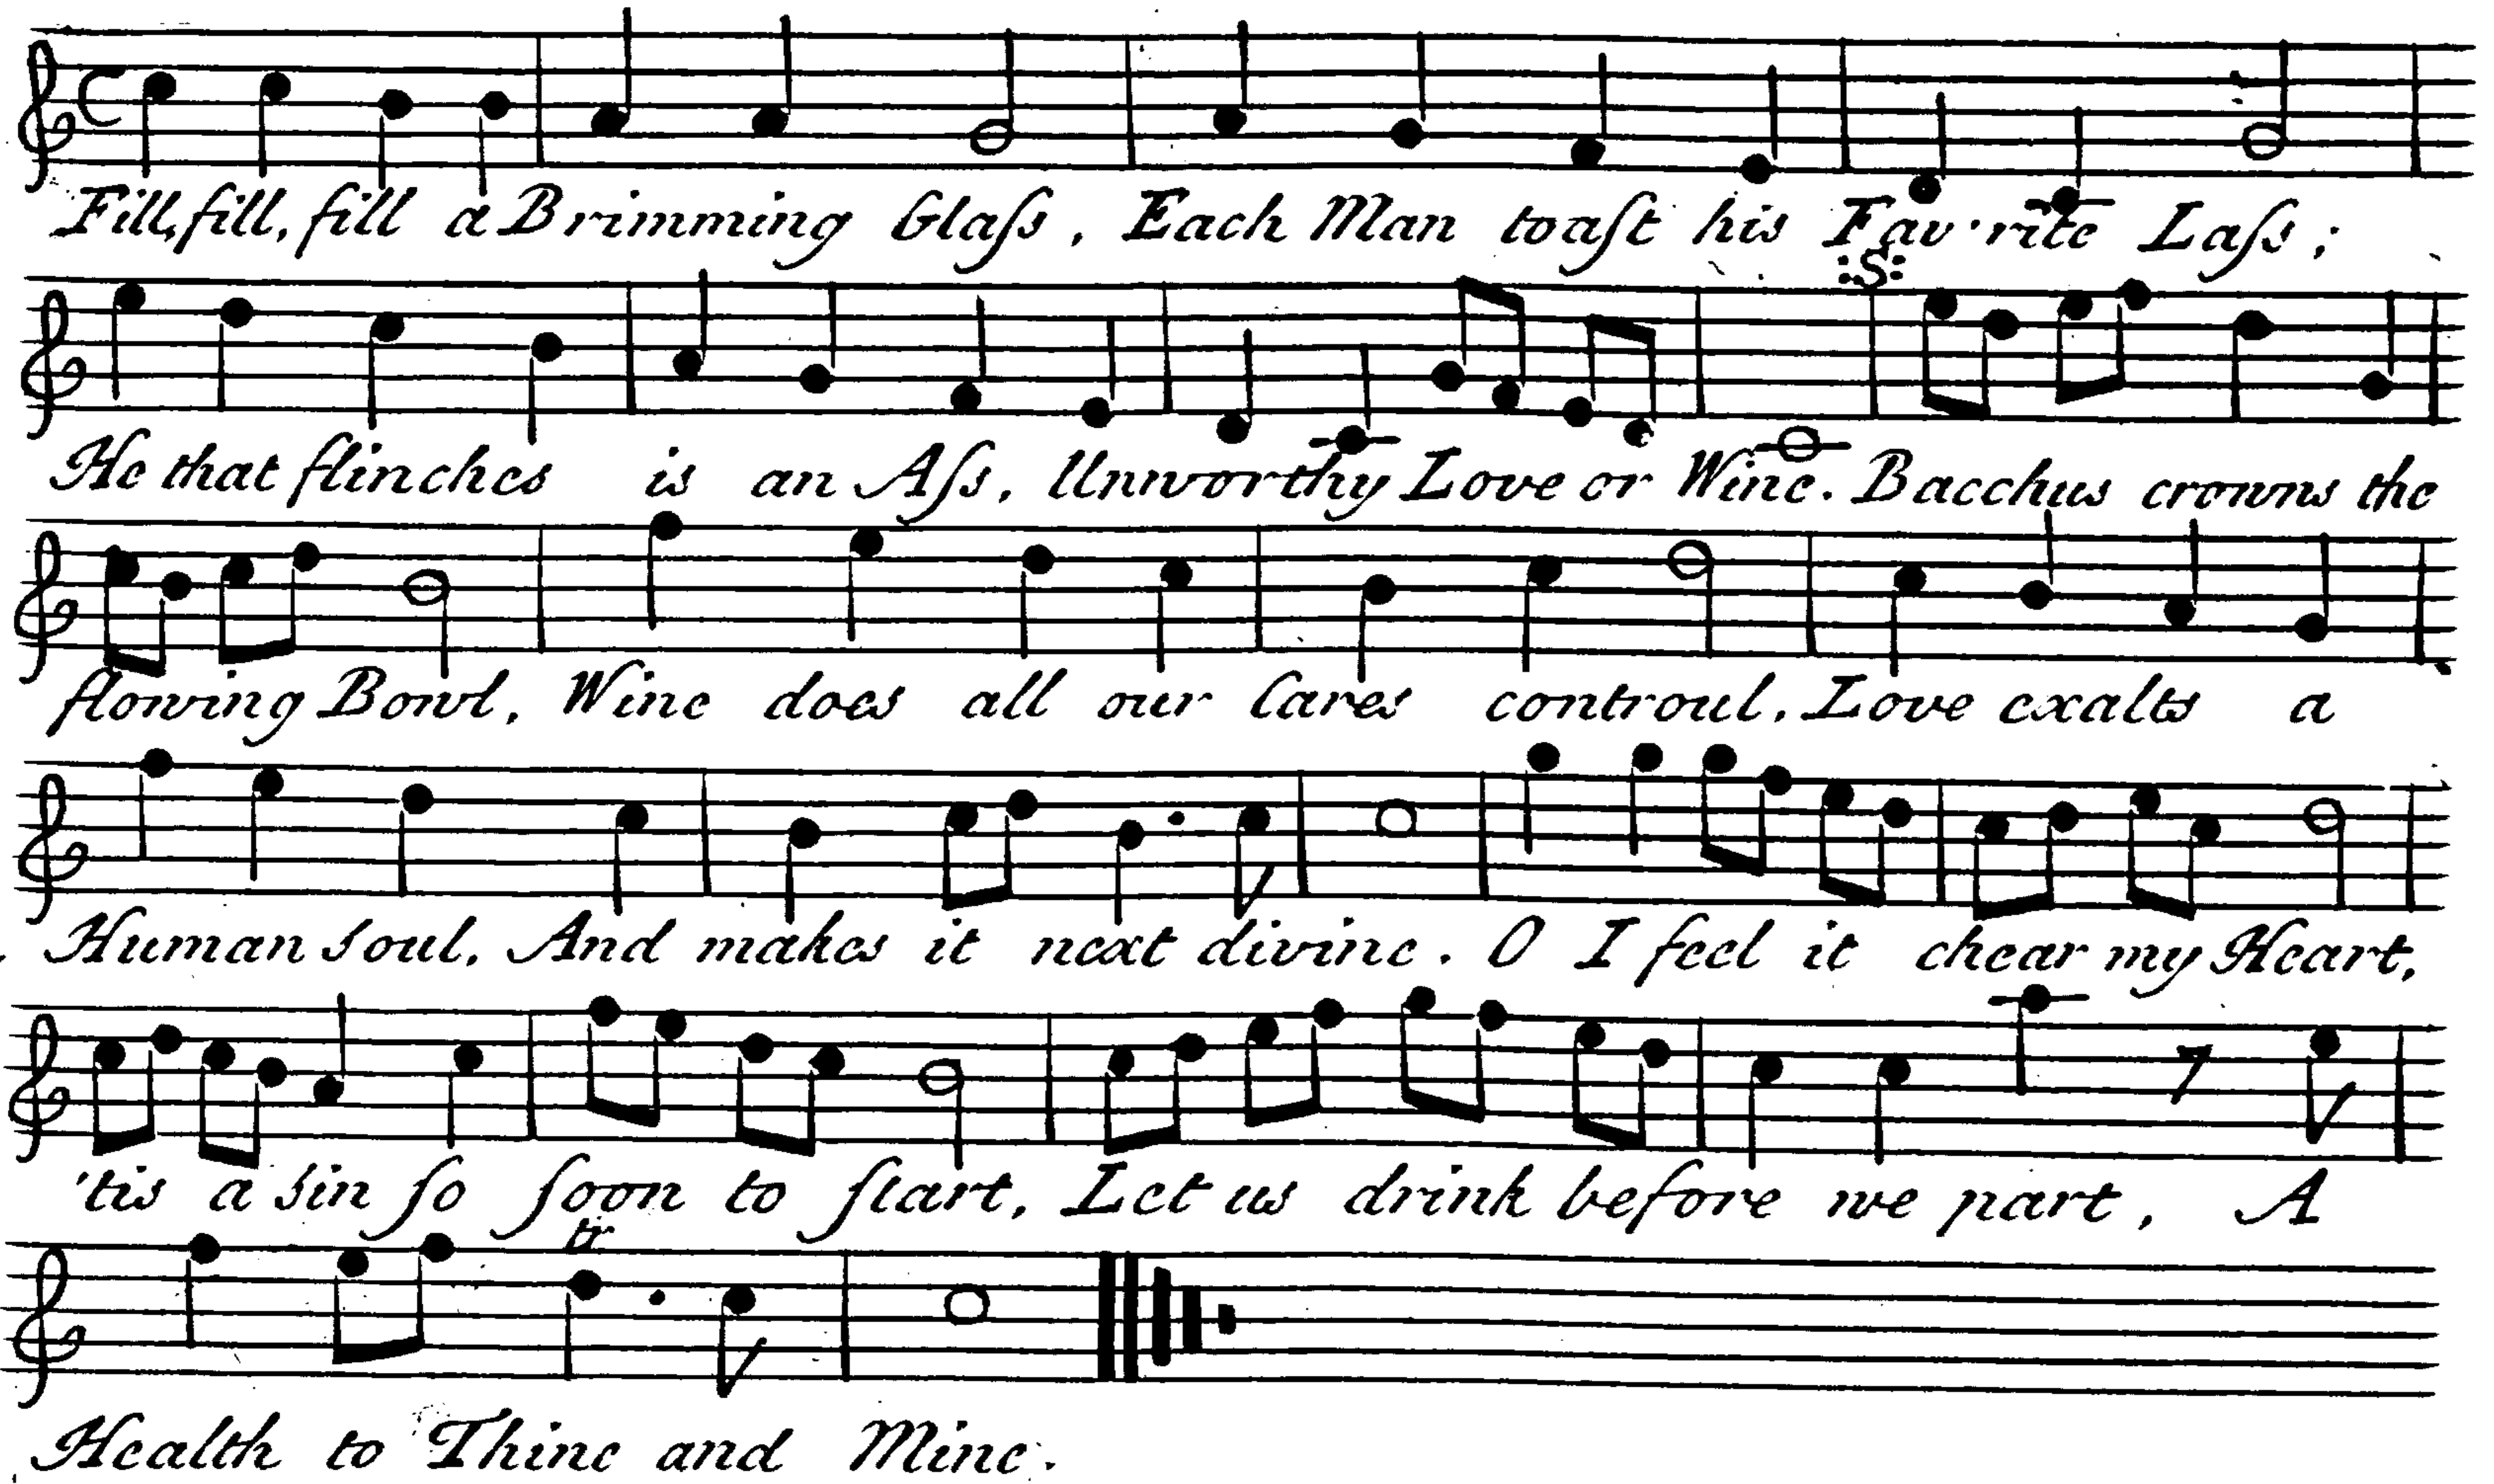 Fill, fill, fill a Brimming Glaſs, Each Man toaſt his Fav'rite Laſs;
:S:
He that flinches is an Aſs, Unworthy Love or Wine. Bacchus crowns the
flowing Bowl, Wine does all our Cares controul, Love exalts a
Human soul, And makes it next divine. O I feel it chear my Heart,
'tis a sin ſo ſoon to ſtart, Let us drink before we part, A
tr
Health to Thine and Mine.